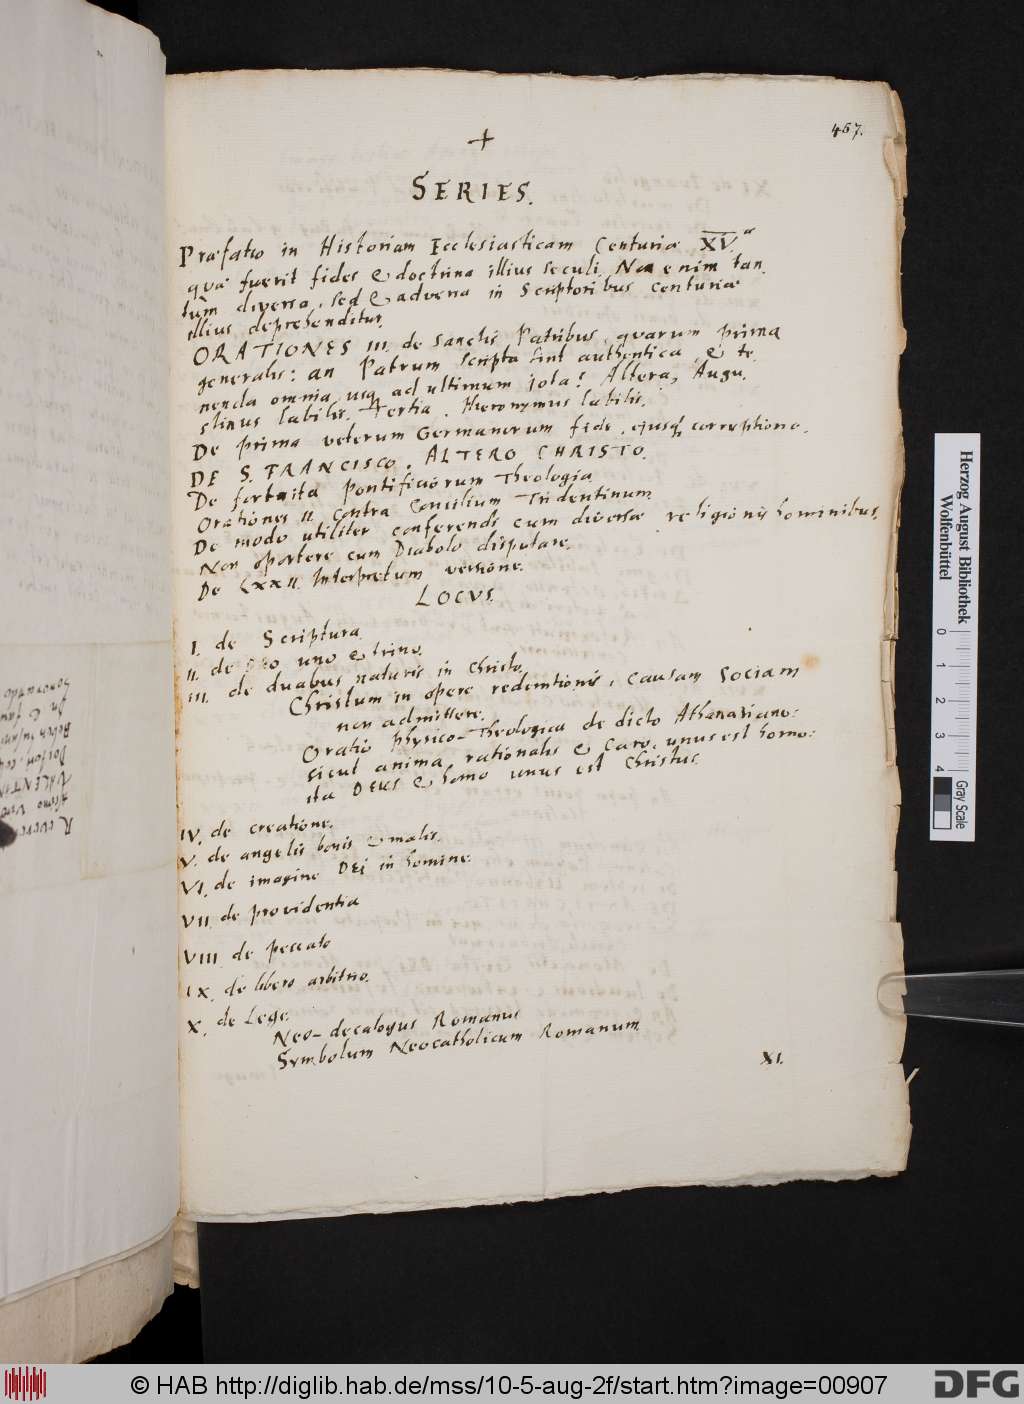 467.
+
SERIES.
Præfatio in Historiam Ecclesiasticam Centuriæ XV.ae
quæ fuerit fides & doctrina illius seculi. Non enim tan
tùm diversa, sed & adversa in Scriptoribus centuriæ
illius deprehenditur.
ORATIONES III. de sanctis Patribus, quarum prima
generalis: an Patrum scripta sint authentica, & te
nenda omnia usq ad ultimum jota? Altera, Augu
stinus labilis. Tertia, Hieronymus labilis.
De prima veterum Germanorum fide, ejusq correptione.
DE S. FRANCISCO, ALTERO CHRISTO.
De fortuita Pontificiorum Theologia
Orationes II contra Concilium Tridentinum
De modo utiliter conferendi cum diversæ religionis hominibus.
Non oportere cum Diabolo disputare.
De LXXII. Interpretum versione.
LOCUS.
I. de Scriptura
II. de Deo uno & trino.
III. de duabus naturis in Christo.
Christum in opere redemtionis, causam sociam
non admittere.
Oratio Physico-Theologica de dicto Athanasiano:
sicut anima rationalis & caro, unus est homo:
ita DEUS & homo unus est Christus.
IV. de creatione.
V. de angelis bonis & malis.
VI. de imagine DEI in homine.
VII. de providentia
VIII. de peccato
IX. de libero arbitrio.
X. de Lege.
Neo-decalogus Romanus
Symbolum Neocatholicum Romanum
XI.
Herzog August Bibliothek
Wolfenbüttel
0 1 2 3 4
Gray Scale
© HAB http://diglib.hab.de/mss/10-5-aug-2f/start.htm?image=00907
DFG